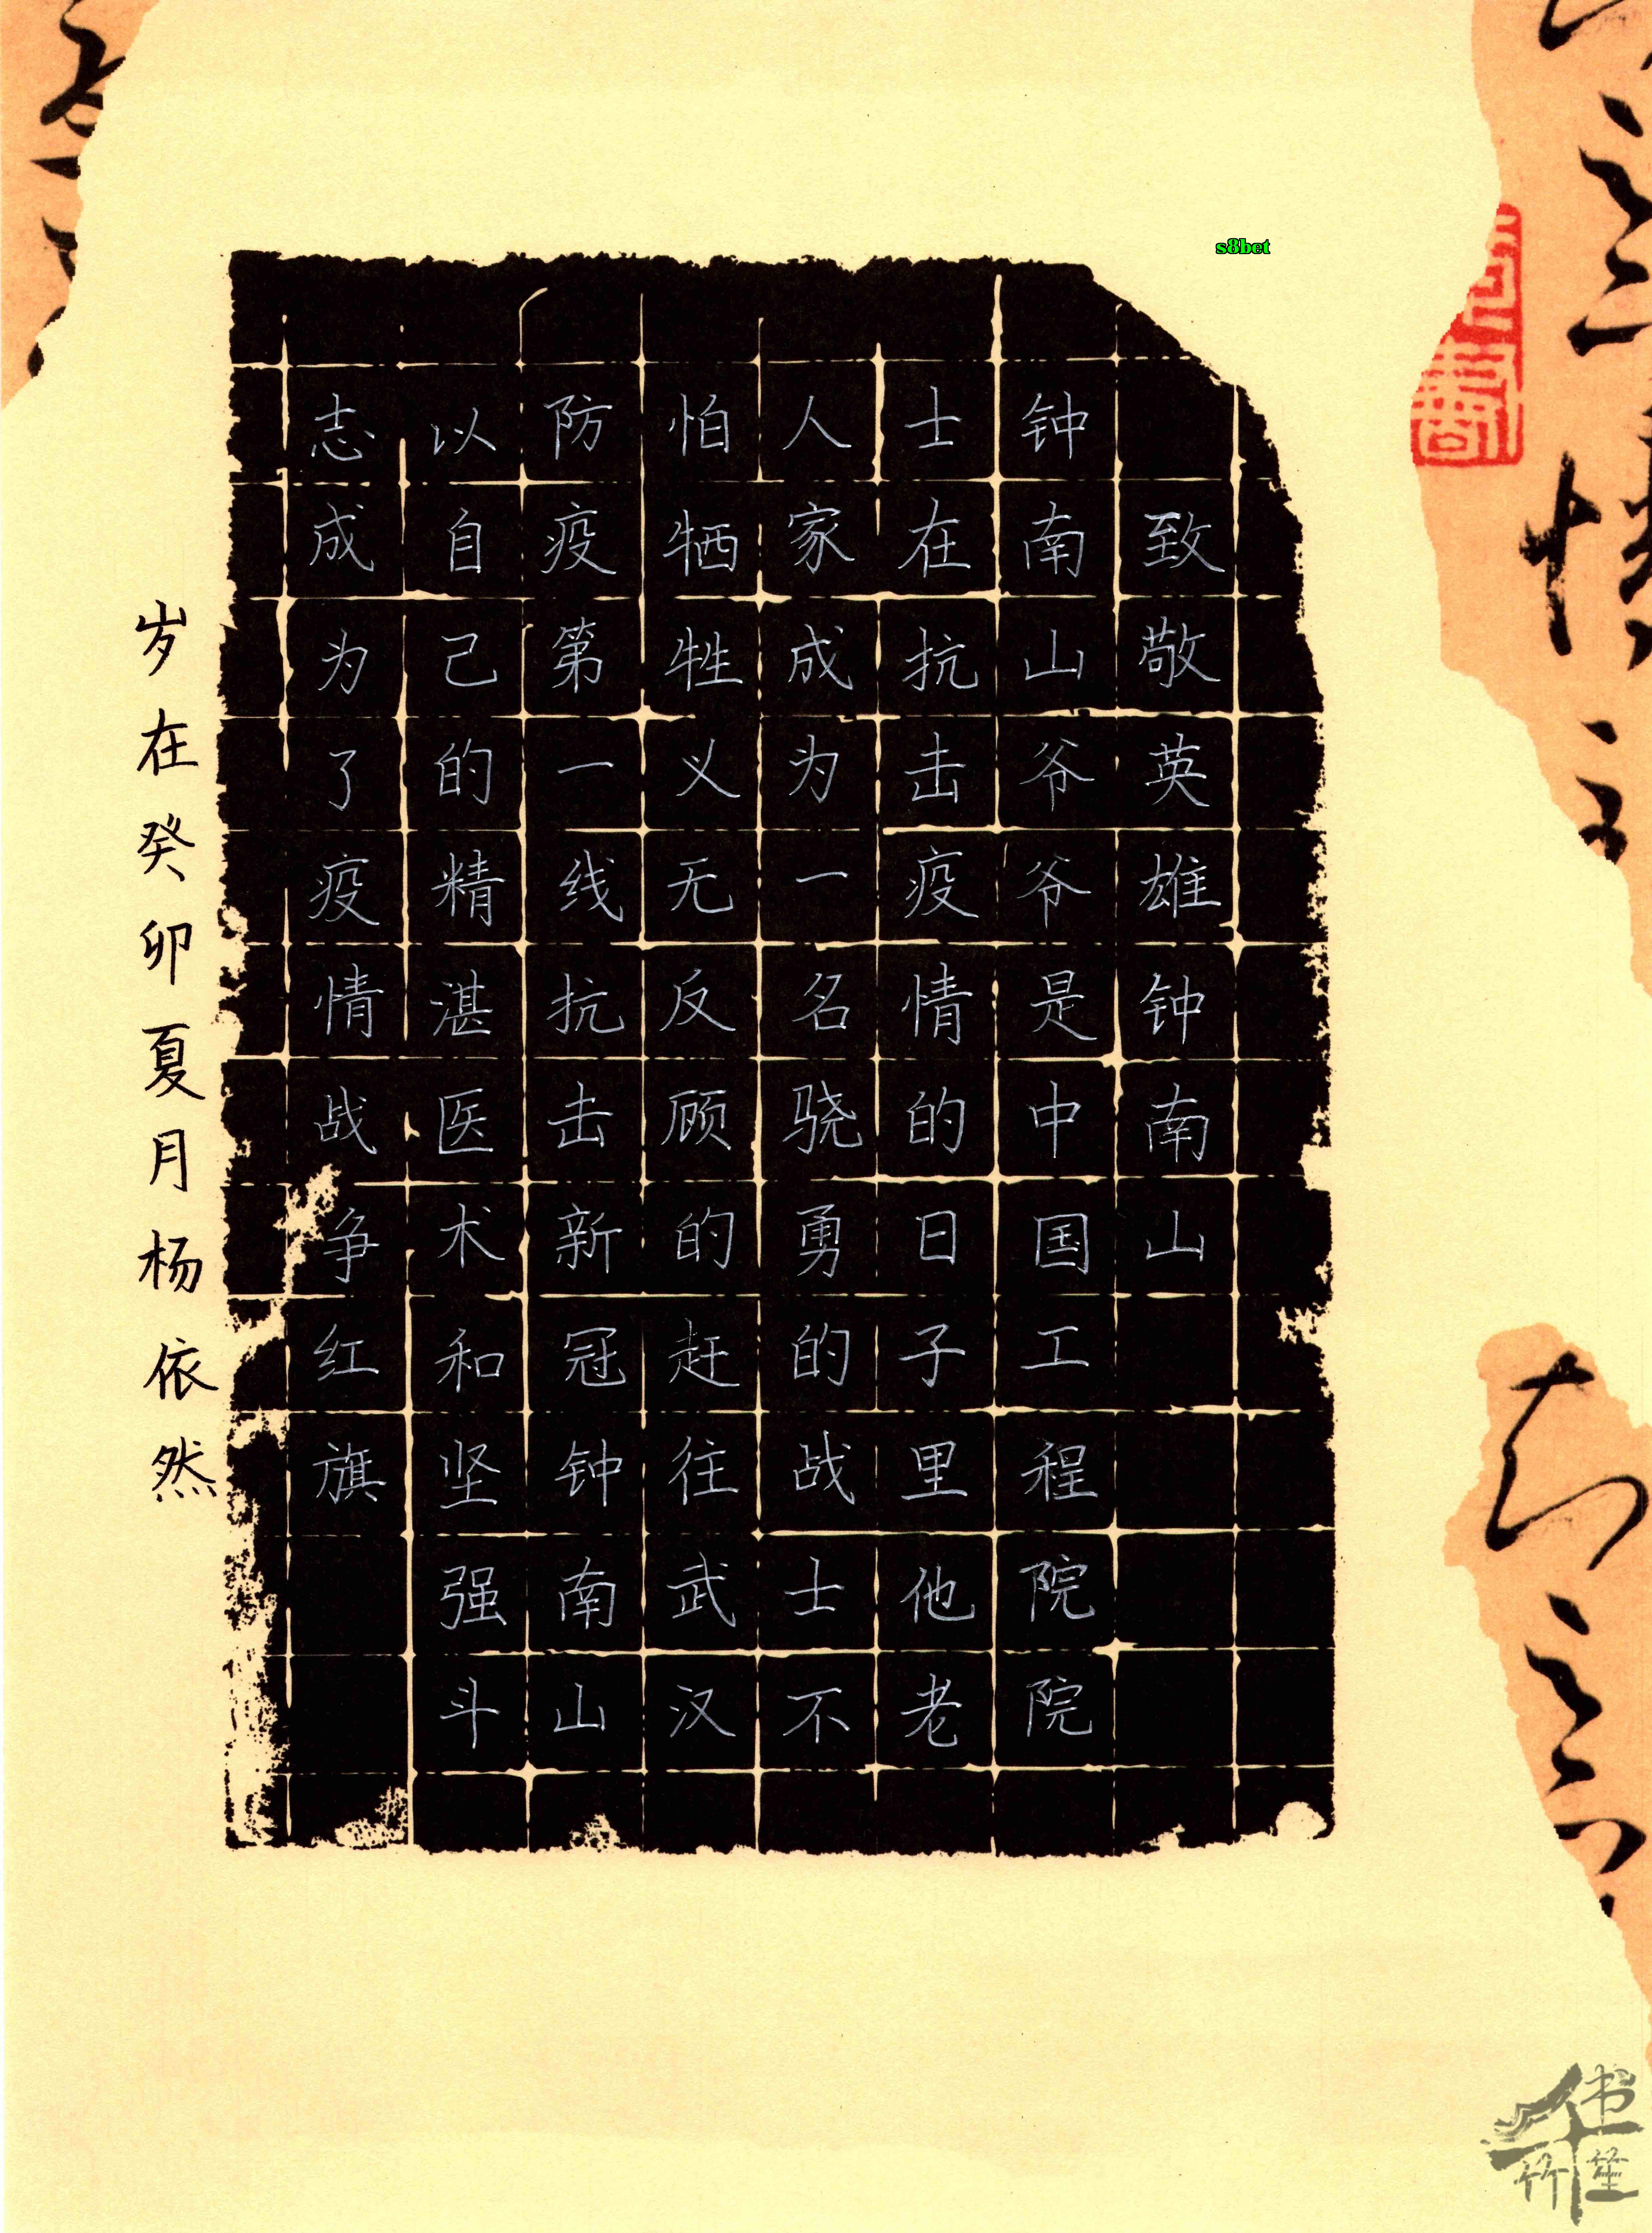 致敬英雄钟南山
钟南山爷爷是中国工程院院
士在抗击疫情的日子里他老
人家成为一名骁勇的战士不
怕牺牲义无反顾的赶往武汉
防疫第一线抗击新冠钟南山
以自己的精湛医术和坚强斗
志成为了疫情战争红旗
岁在癸卯夏月杨依然
s8bet